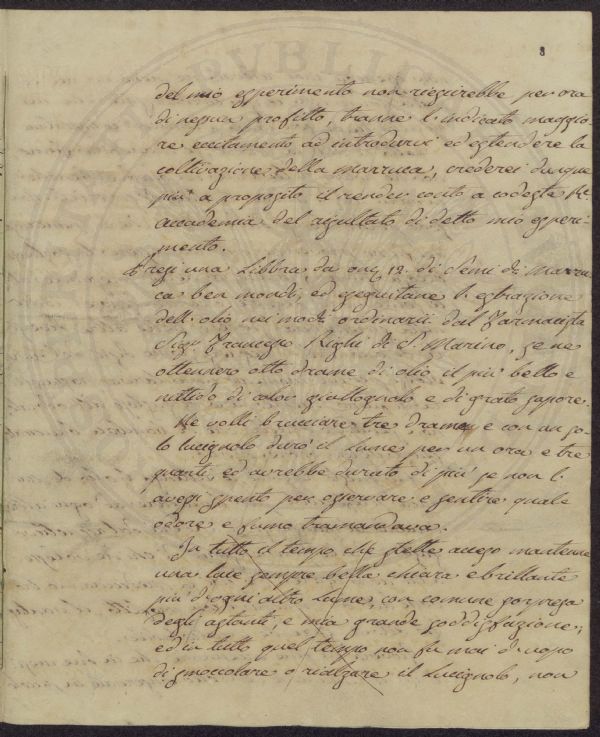 8
del mio esperimento non riescirebbe per ora
di nessun profitto, tranne l'indicato maggio
re eccitamento ad introdurvi ed estendere la
coltivazione della marruca, crederei dunque
più a proposito il render conto a codesta Re.
accademia del risultato di detto mio esperi
mento.
Presi una Libbra da onc. 12. di Semi di Marru
ca ben mondi, ed eseguitane l'estrazione
dell'olio nei modi ordinarii dal Farmacista
Sigr Francesco Righi di S. Marino, se ne
ottennero otto dramme di olio il più bello e
nitido di color giallognolo e di grato sapore.
Ne volli bruciare tre dramme, e con un so
lo lucignolo durò il lume per un ora e tre
quarti, ed avrebbe durato di più se non l'
avessi spento per osservare e sentire quale
odore e fumo tramandava.
In tutto il tempo che stette acceso mantenne
una luce sempre bella chiara e brillante
più d'ogni altro lume, con comune sorpresa
degli astanti, e mia grande soddisfazione;
ed in tutto quel tempo non fu mai d'uopo
di smoccolare o rialzare il lucignolo, non
PVBLIC